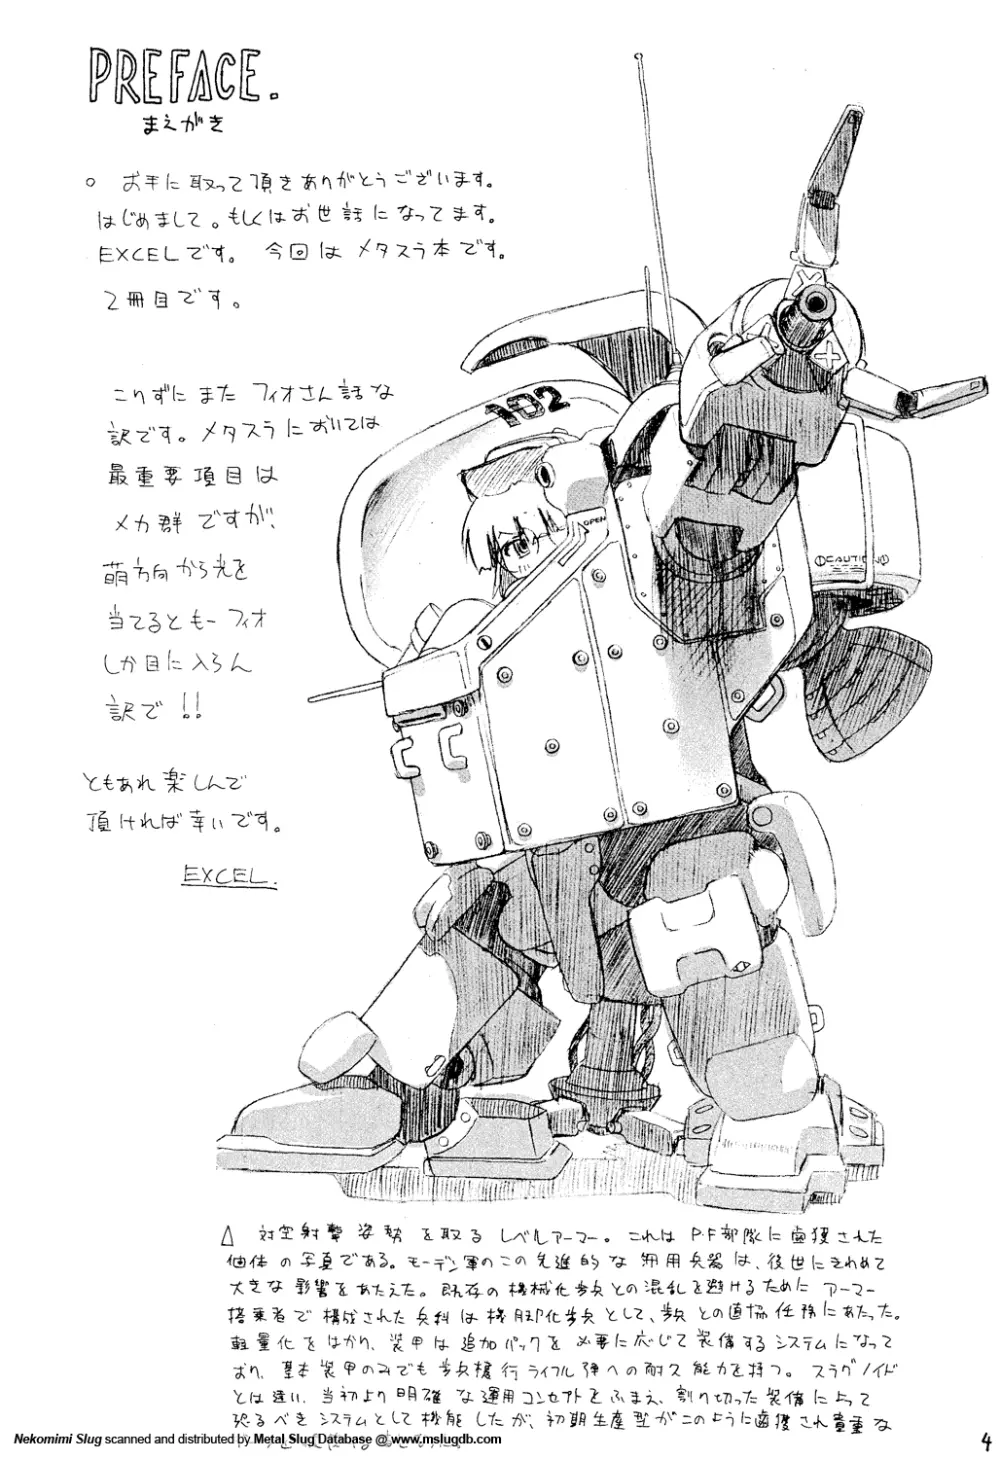 PREFACE.
まえがき
○ お手に取って頂きありがとうございます。
はじめまして。もしくはお世話になってます。
EXCELです。 今回は メタスラ本です。
2冊目です。
こりずに また フィオさん話な
訳です。メタスラ においては
最重要項目は
メカ群 ですが、
萌方向から光を
当てるともー フィオ
しか目に入らん
訳で !!
ともあれ 楽しんで
頂ければ幸いです。
EXCEL.
102
OPEN
CAUTION
△ 対空射撃 姿勢 を取る レベルアーマー。これは P.F部隊に鹵獲された
個体 の 写真である。モーデン軍のこの先進的な 兵器は、後世にきわめて
大きな 影響をあたえた。既存の 機械化歩兵との混乱を避けるために アーマー
搭乗者で 構成された 兵科 は 機脚化歩兵 として、歩兵 との直協 任務にあたった。
軽量化 を はかり、装甲 は 追加パックを 必要に応じて 装備するシステムになって
おり、基本 装甲のみでも 歩兵携行 ライフル 弾への耐久 能力を持つ。スラグノイド
とは違い、当初より 明確 な 運用コンセプトをふまえ、割り切った 装備 によって
恐るべき システムとして 機能 したが、初期生産型がこのように鹵獲され貴重な
Nekomimi Slug scanned and distributed by Metal Slug Database @ www.mslugdb.com
4